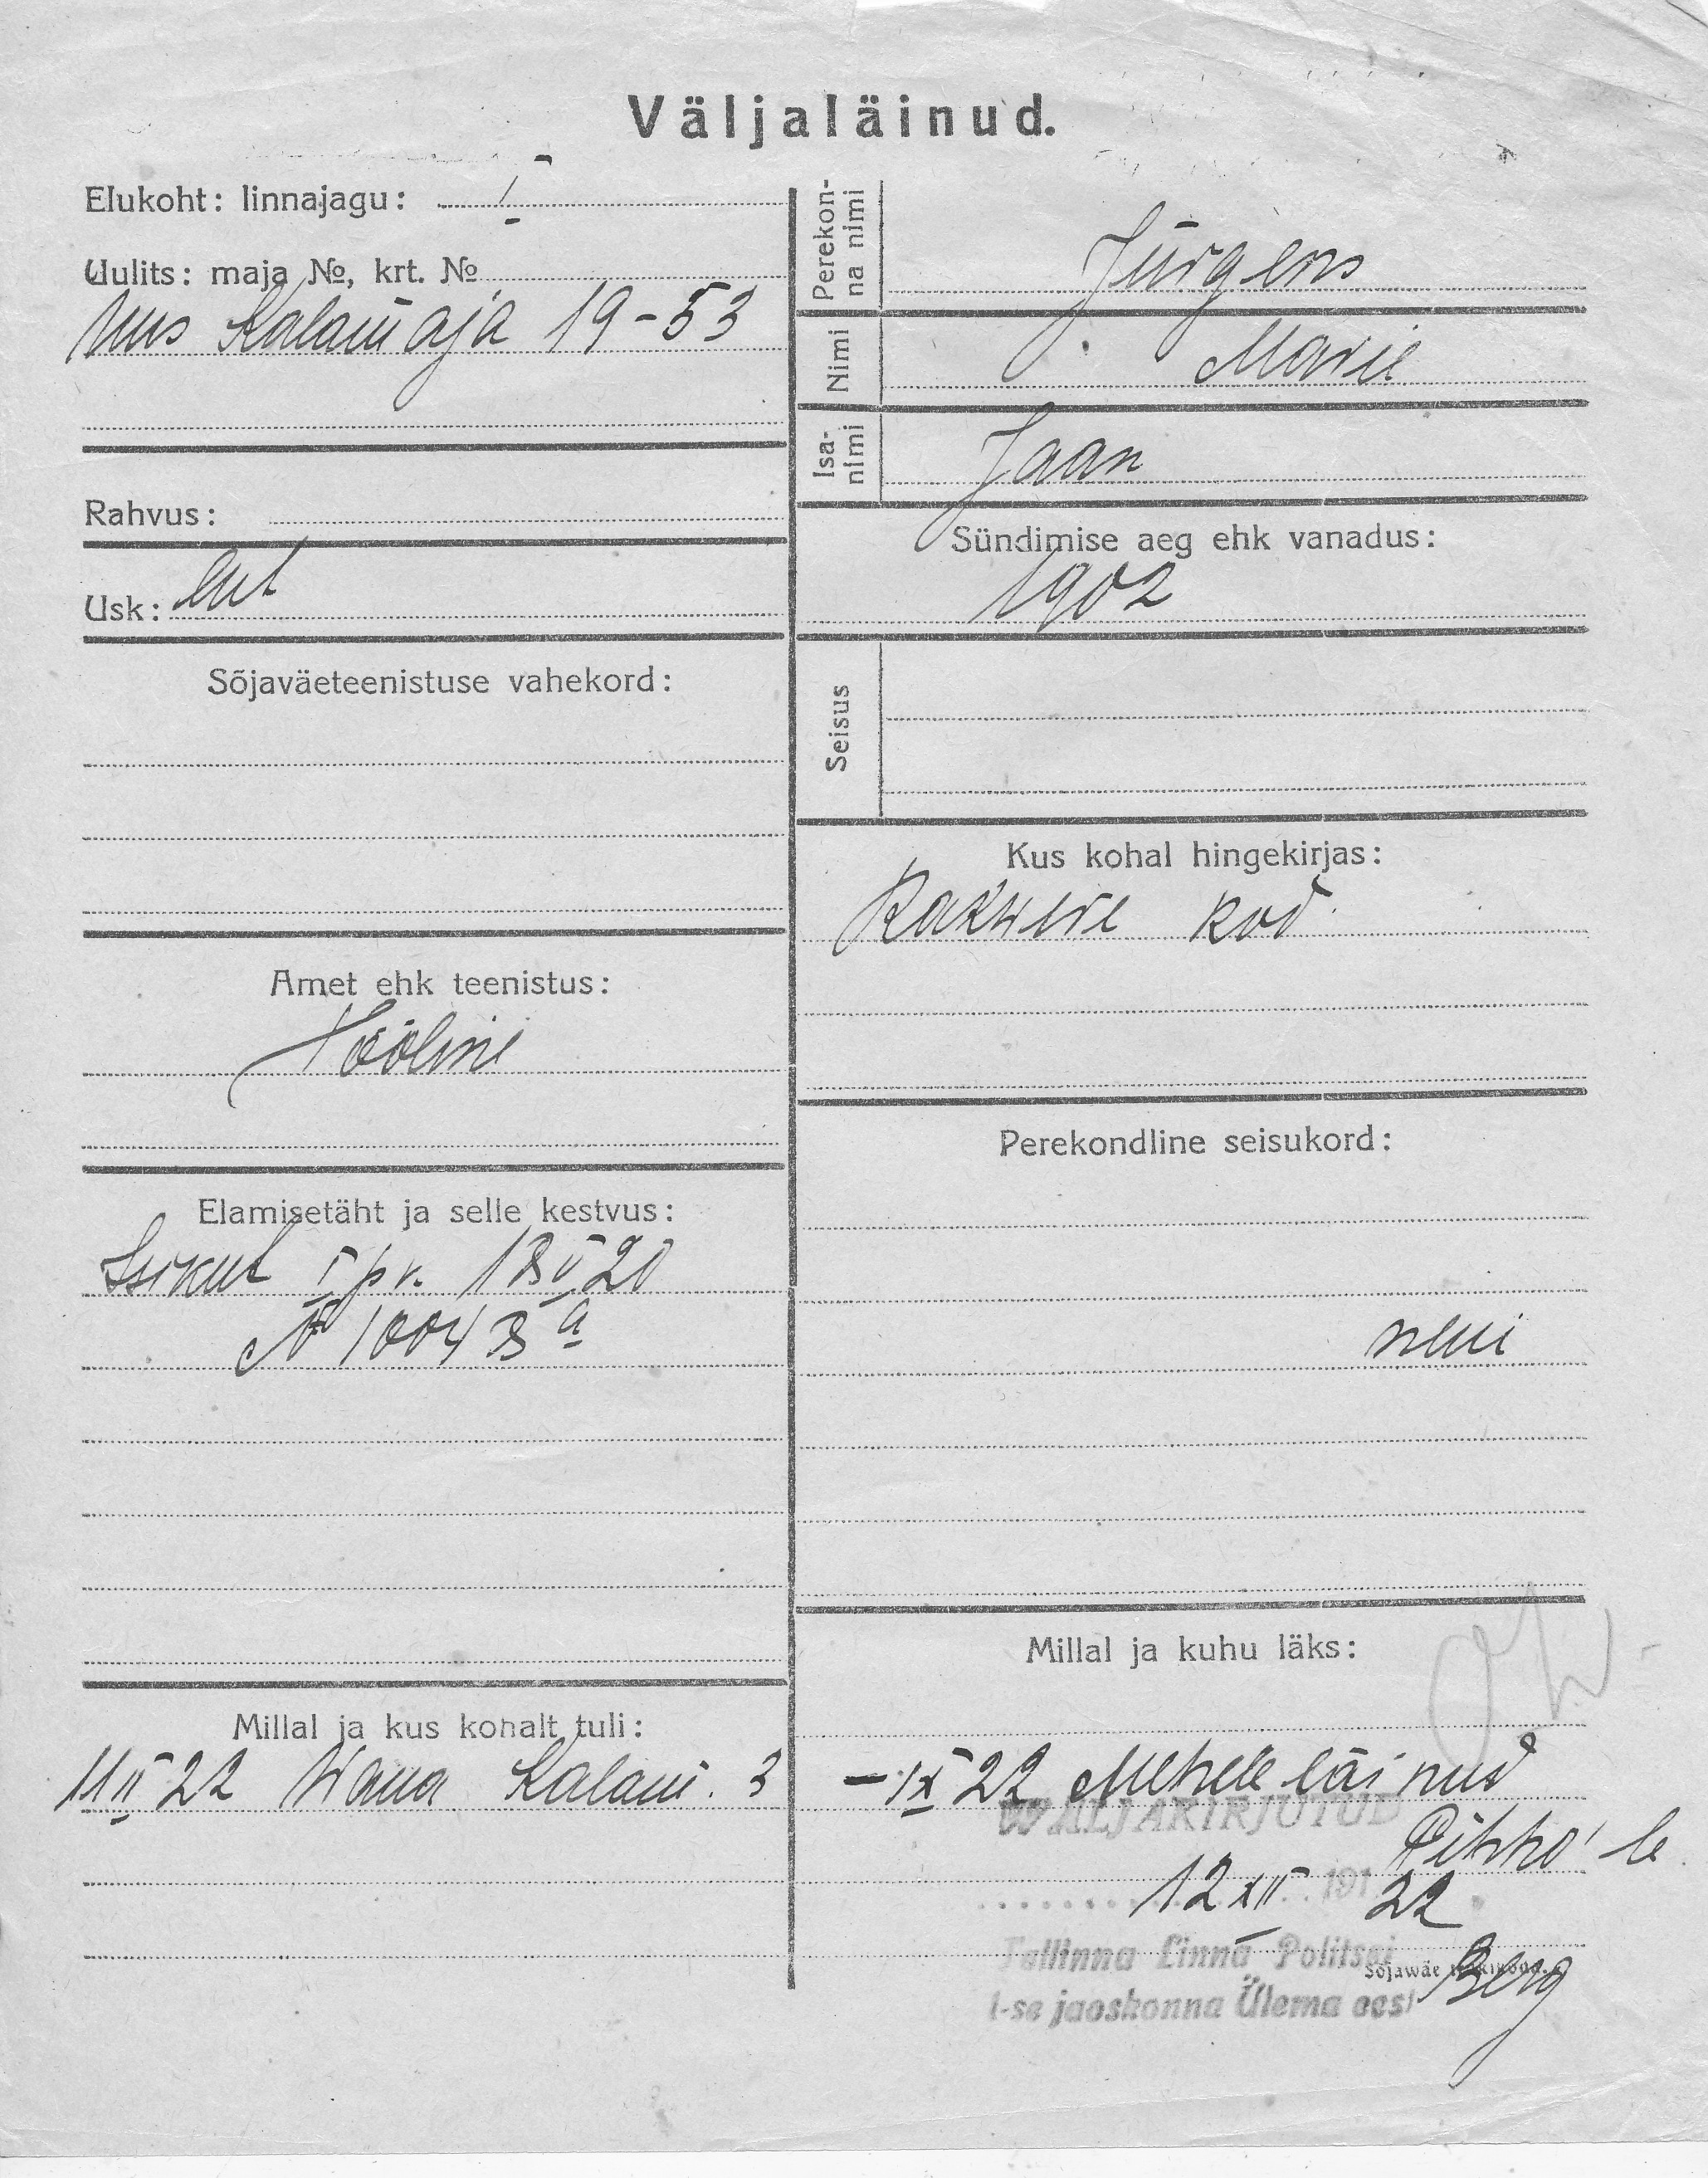 Väljaläinud.
Elukoht: linnajagu: I
Uulits: maja №, krt. №
Uus Kalamaja 19-53
Rahvus:
Usk: lut
Sõjaväeteenistuse vahekord:
Amet ehk teenistus:
Tööline
Elamisetäht ja selle kestvus:
Isikut I pr. 13 V 20
№ 10043 a
Millal ja kus kohalt tuli:
11 II 22 Wana Kalam. 3
Perekon-
na nimi
Jürgens
Nimi
Marie
Isa-
nimi
Jaan
Sündimise aeg ehk vanadus:
1902
Seisus
Kus kohal hingekirjas:
Rakwere kod
Perekondline seisukord:
neiu
Millal ja kuhu läks:
- IX 22 Mehele läinud
WÄLJAKIRJUTUD
Pihho'le
12 XII 191 22
Tallinna Linna Politsei
Sõjawäe trükikoda.
I-se jaoskonna Ülema eest Berg